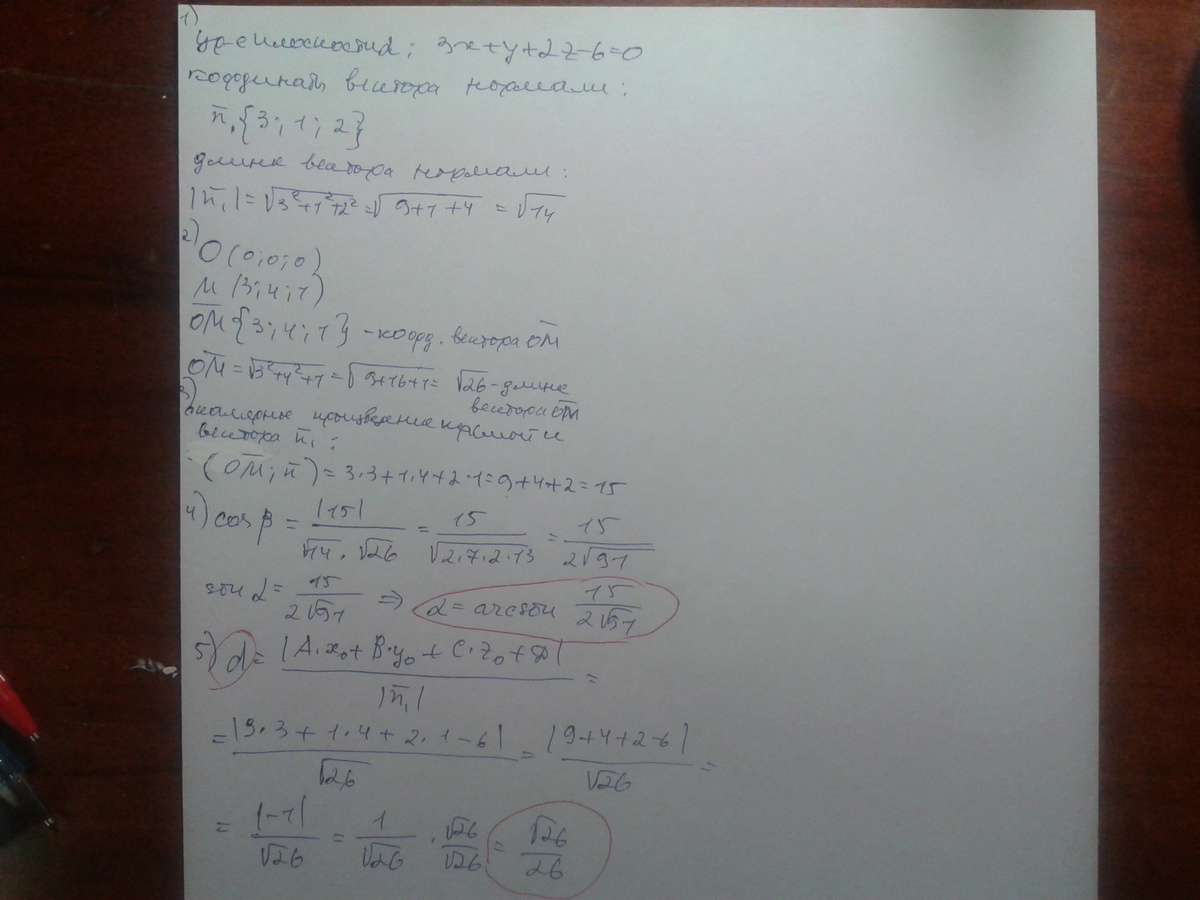 1)
ур-е плоскости α: 3x+y+2z-6=0
координаты вектора нормали:
n̅₁{3; 1; 2}
длина вектора нормали:
|n̅₁| = √(3²+1²+2²) = √(9+1+4) = √14
2) O (0;0;0)
M (3;4;1)
O̅M̅{3;4;1} - коорд. вектора O̅M̅
O̅M̅ = √(3²+4²+1) = √(9+16+1) = √26 - длина
вектора O̅M̅
3)
скалярное произведение прямой и
вектора n̅₁:
(O̅M̅; n̅) = 3·3+1·4+2·1=9+4+2=15
4) cos β = |15| / (√14 · √26) = 15 / √(2·7·2·13) = 15 / (2√91)
sin α = 15 / (2√91) ⇒ α = arcsin 15 / (2√91)
5) d = |A·x₀ + B·y₀ + C·z₀ + D| / |n̅₁| =
= |3·3 + 1·4 + 2·1 - 6| / √26 = |9+4+2-6| / √26 =
= |-1| / √26 = 1 / √26 · √26 / √26 = √26 / 26